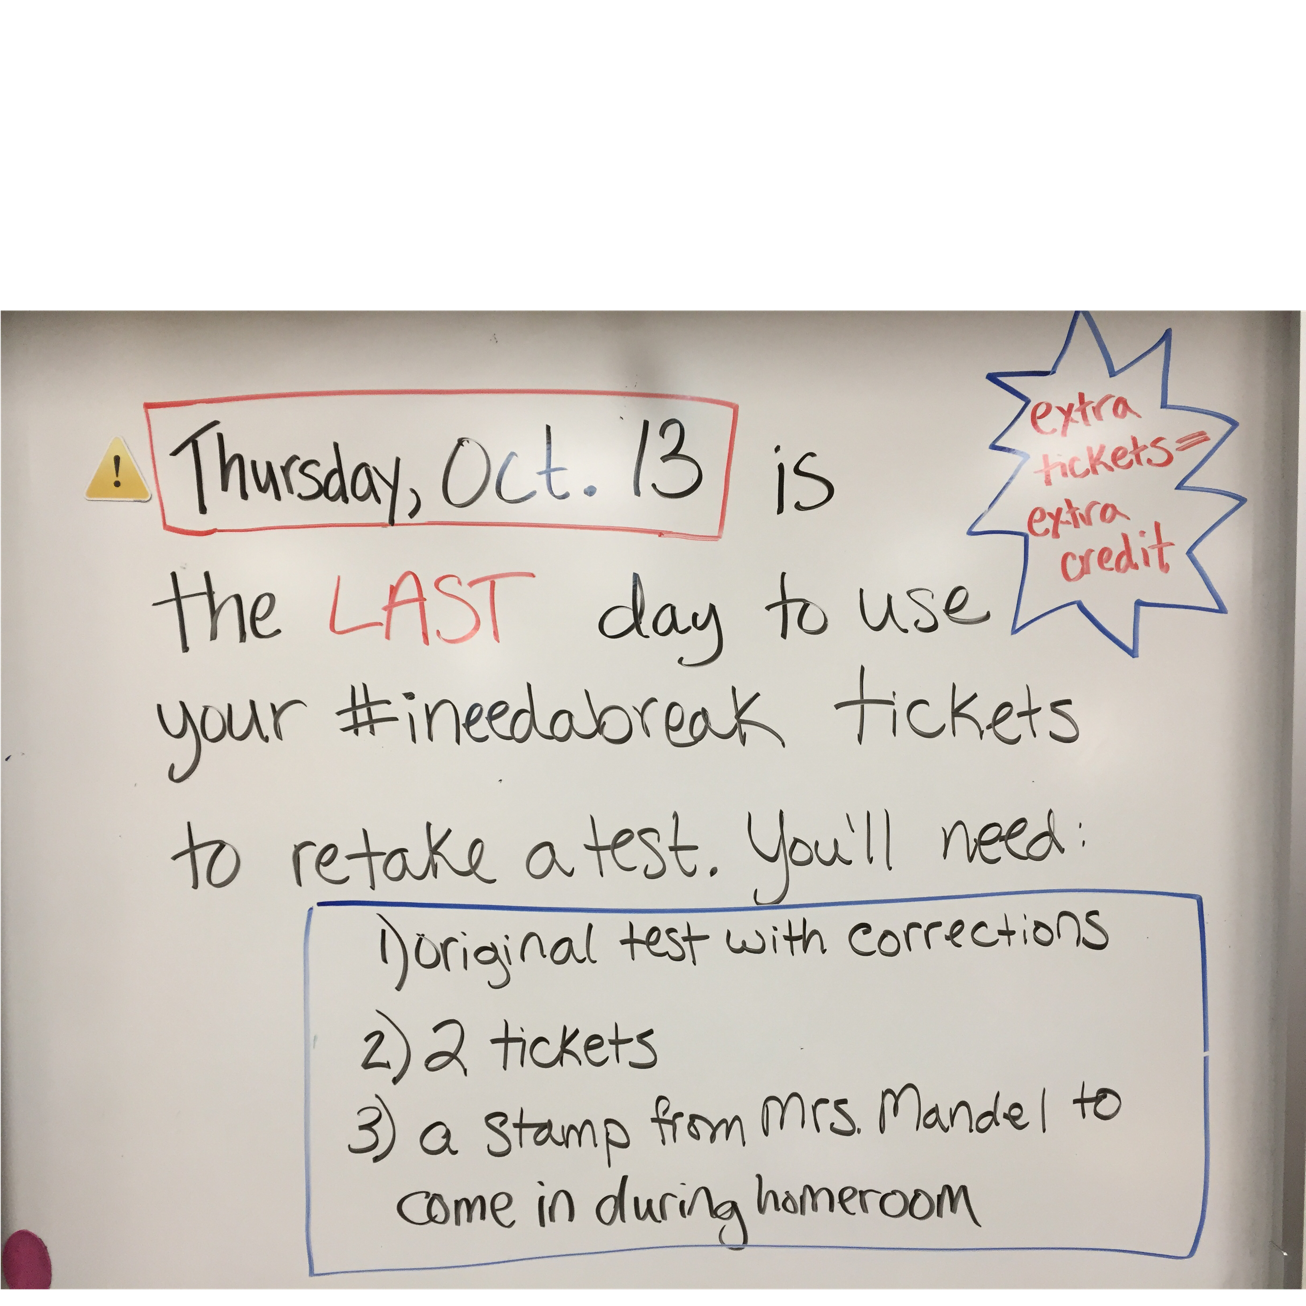 Thursday, Oct. 13 is
the LAST day to use
your #ineedabreak tickets
to retake a test. You'll need:
1) original test with corrections
2) 2 tickets
3) a stamp from Mrs. Mandel to
come in during homeroom
extra
tickets=
extra
credit